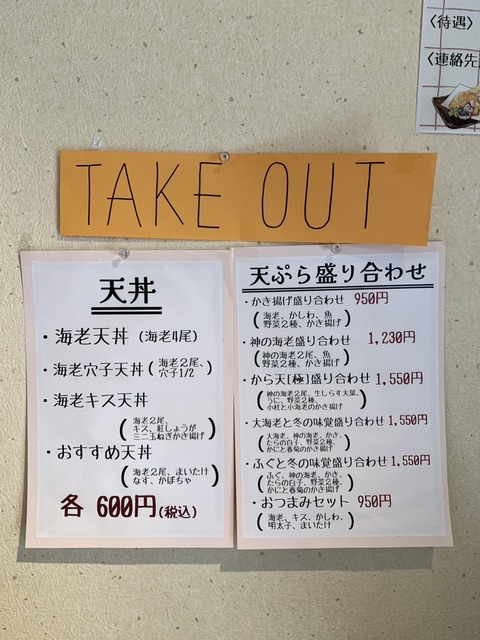 〈待遇〉
〈連絡先
TAKE OUT
天丼
・海老天丼 (海老4尾)
・海老穴子天丼 (海老2尾、
穴子1/2)
・海老キス天丼
(海老2尾、
キス、紅しょうが
ミニ玉ねぎかき揚げ)
・おすすめ天丼
(海老2尾、まいたけ
なす、かぼちゃ)
各 600円(税込)
天ぷら盛り合わせ
・かき揚げ盛り合わせ 950円
(海老、かしわ、魚
野菜2種、かき揚げ)
・神の海老盛り合わせ 1,230円
(神の海老2尾、魚
野菜2種、かき揚げ)
・から天[極]盛り合わせ 1,550円
(神の海老2尾、生しらす大葉、
うに、野菜2種、
小柱と小海老のかき揚げ)
・大海老と冬の味覚盛り合わせ 1,550円
(大海老、神の海老、かき、
たらの白子、野菜2種、
かにと春菊のかき揚げ)
・ふぐと冬の味覚盛り合わせ 1,550円
(ふぐ、神の海老、かき、
たらの白子、野菜2種、
かにと春菊のかき揚げ)
・おつまみセット 950円
(海老、キス、かしわ、
明太子、まいたけ)